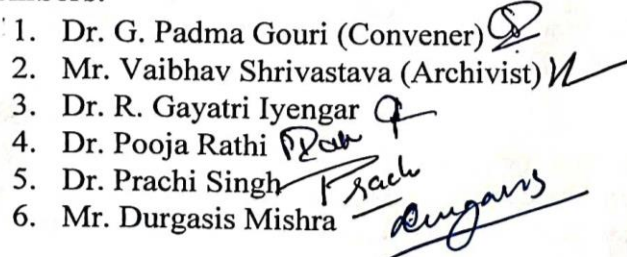 1. Dr. G. Padma Gouri (Convener)
2. Mr. Vaibhav Shrivastava (Archivist)
3. Dr. R. Gayatri Iyengar
4. Dr. Pooja Rathi
5. Dr. Prachi Singh Prach
6. Mr. Durgasis Mishra